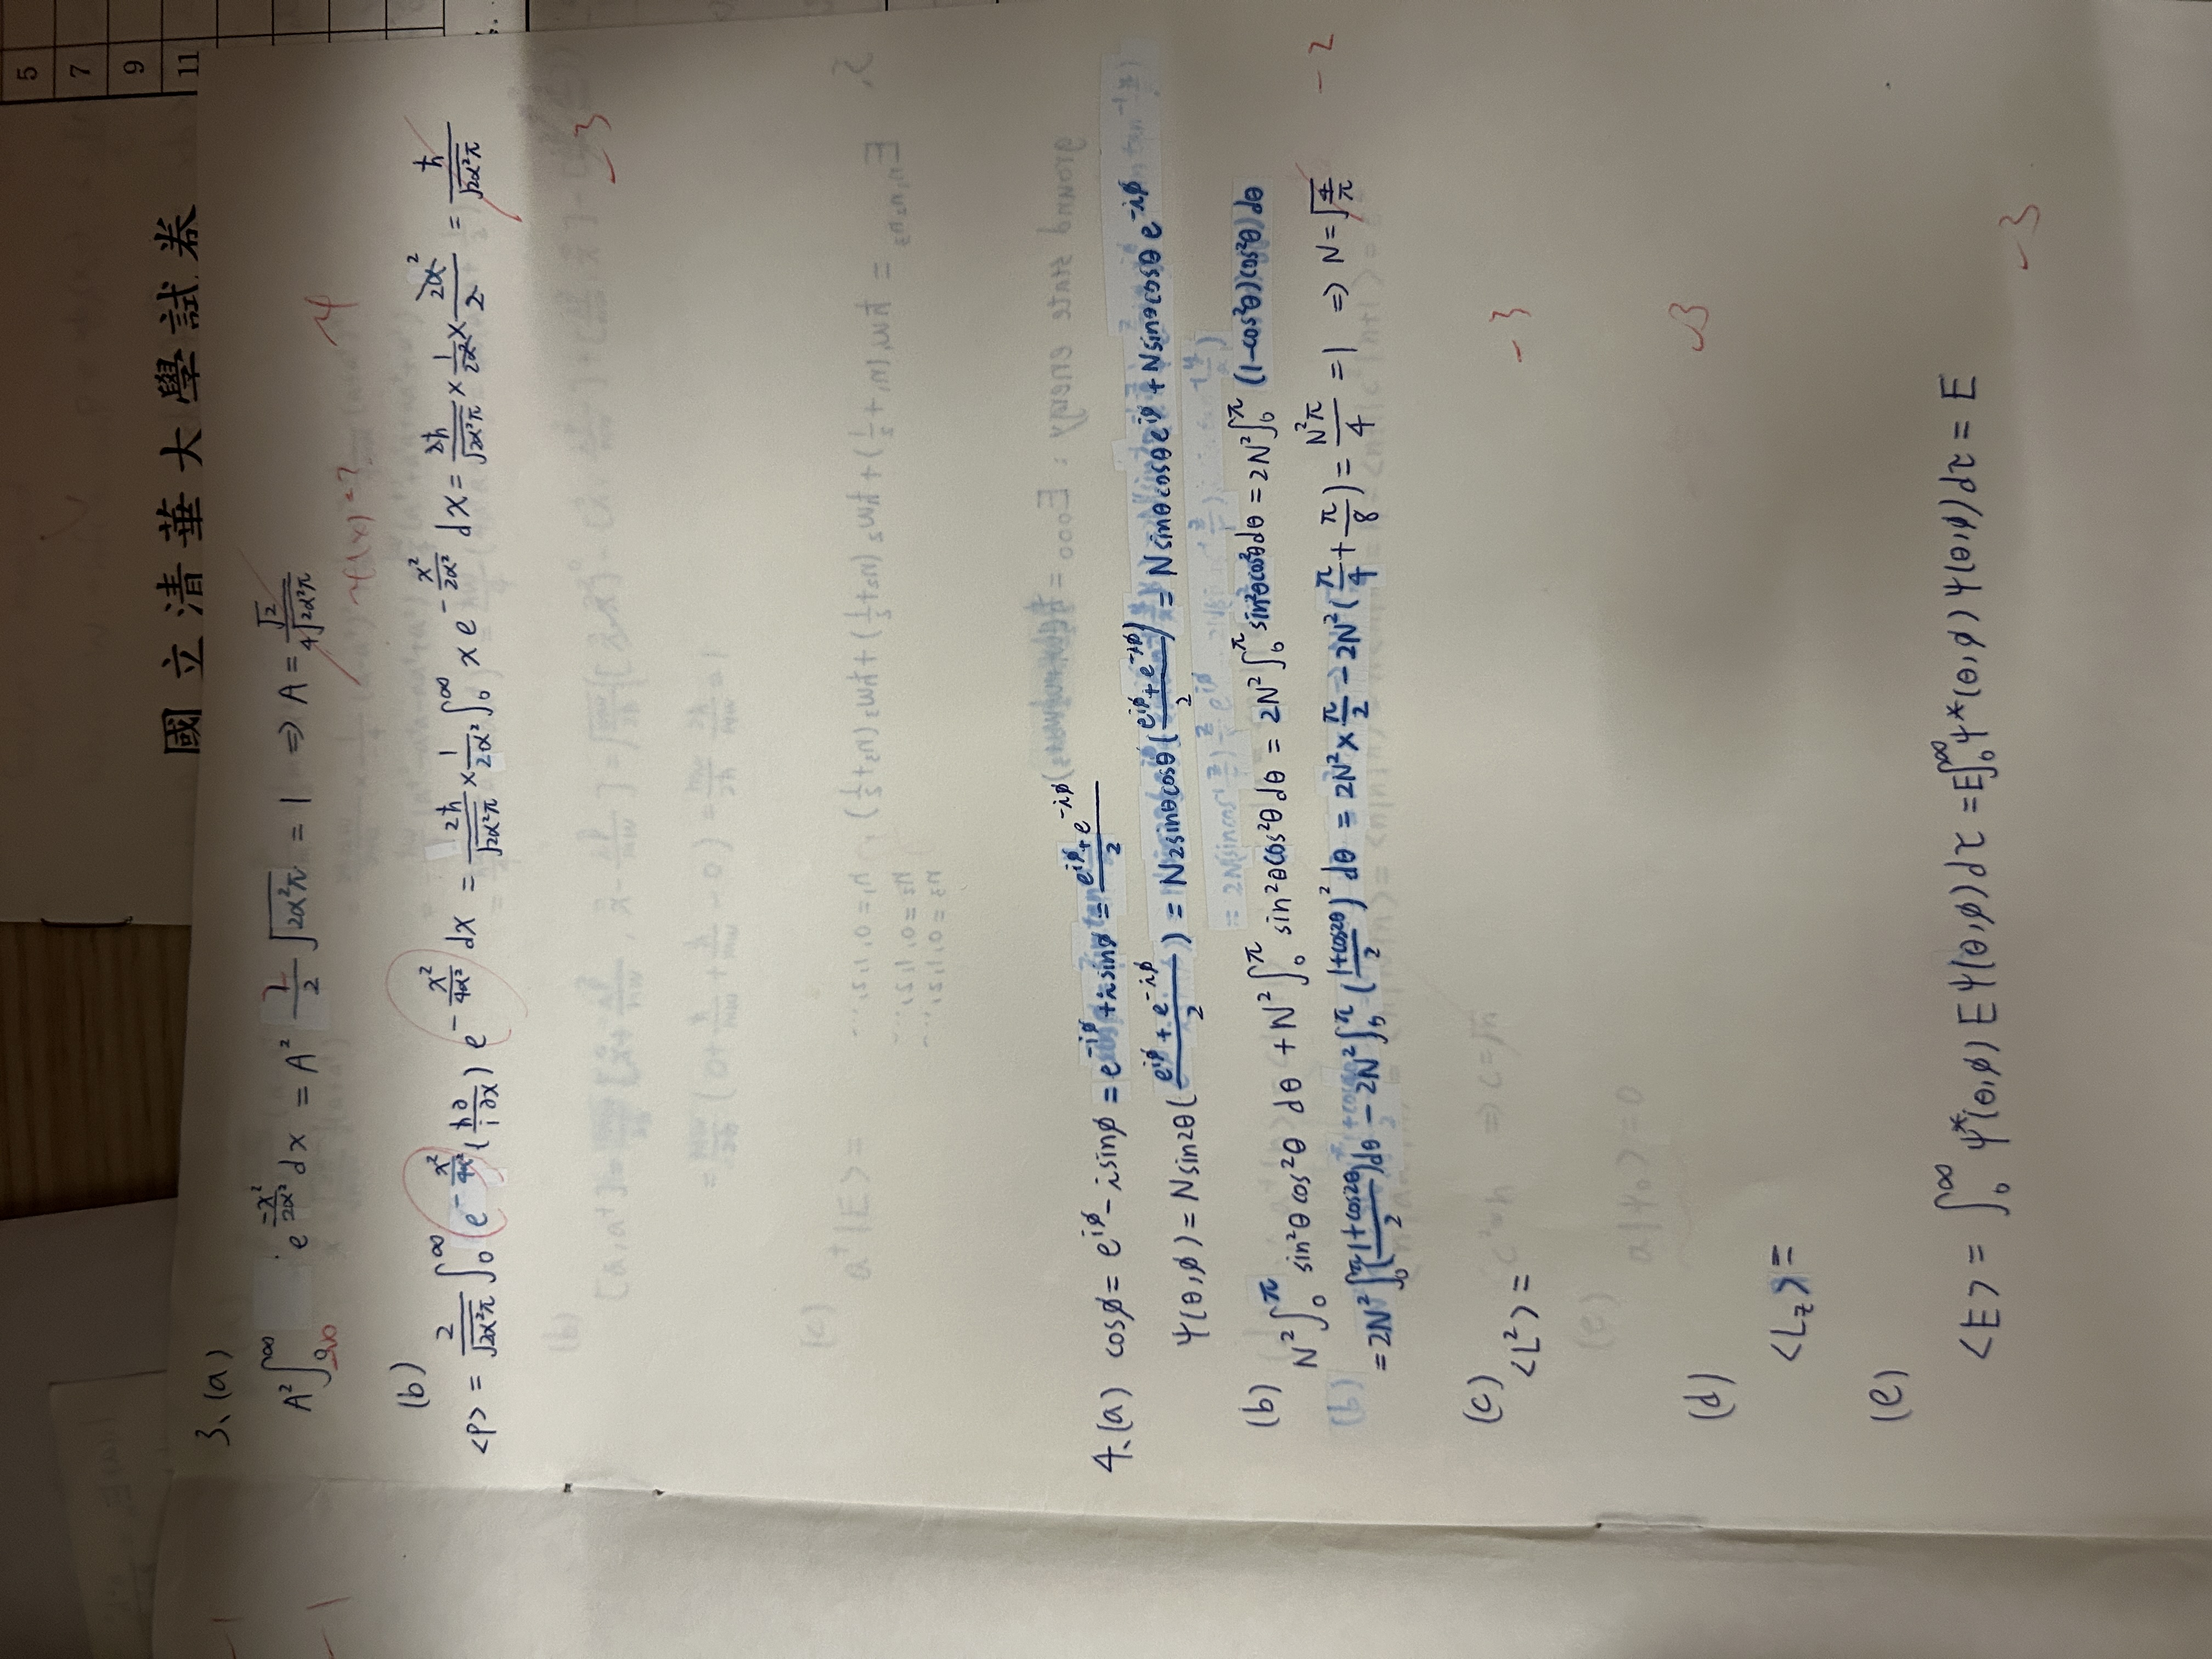 5
7
9
11
國立清華大學試卷
-1
-1
3、(a)
A² ∫₀^∞ e^(-x²/2α²) dx = A² 1/2 √(2α²π) = 1 ⇒ A = √2/⁴√(2α²π)
-∞
ψ(x)=?
-4
(b)
<p> = 2/√(2α²π) ∫₀^∞ e^(-x²/4α²) (ħ∂/i∂x) e^(-x²/4α²) dx = 2ħ/√(2α²π) × 1/2α² ∫₀^∞ x e^(-x²/2α²) dx = 2ħ/√(2α²π) × 1/2α² × 2α²/2 = ħ/√(2α²π)
-3
4、(a) cosϕ = e^(iϕ) - i sinϕ = e^(-iϕ) + i sinϕ = (e^(iϕ) + e^(-iϕ))/2
ψ(θ,ϕ) = N sin2θ ((e^(iϕ) + e^(-iϕ))/2) = N2sinθcosθ ((e^(iϕ) + e^(-iϕ))/2) = N sinθcosθ e^(iϕ) + N sinθcosθ e^(-iϕ)
(b) N² ∫₀^π sin²θ cos²θ dθ + N² ∫₀^π sin²θcos²θ dθ = 2N² ∫₀^π sin²θcos²θ dθ = 2N² ∫₀^π (1-cos²θ)(cos²θ) dθ
= 2N² ∫₀^π (1+cos2θ/2) dθ - 2N² ∫₀^π (1+cos2θ/2)² dθ = 2N² × π/2 - 2N² (π/4 + π/8) = N²π/4 = 1 ⇒ N = √(4/π)
-2
(c)
<L²> =
-3
(d)
-3
<L_z> =
(e)
<E> = ∫₀^∞ ψ*(θ,ϕ) E ψ(θ,ϕ) dτ = E ∫₀^∞ ψ*(θ,ϕ) ψ(θ,ϕ) dτ = E
-3